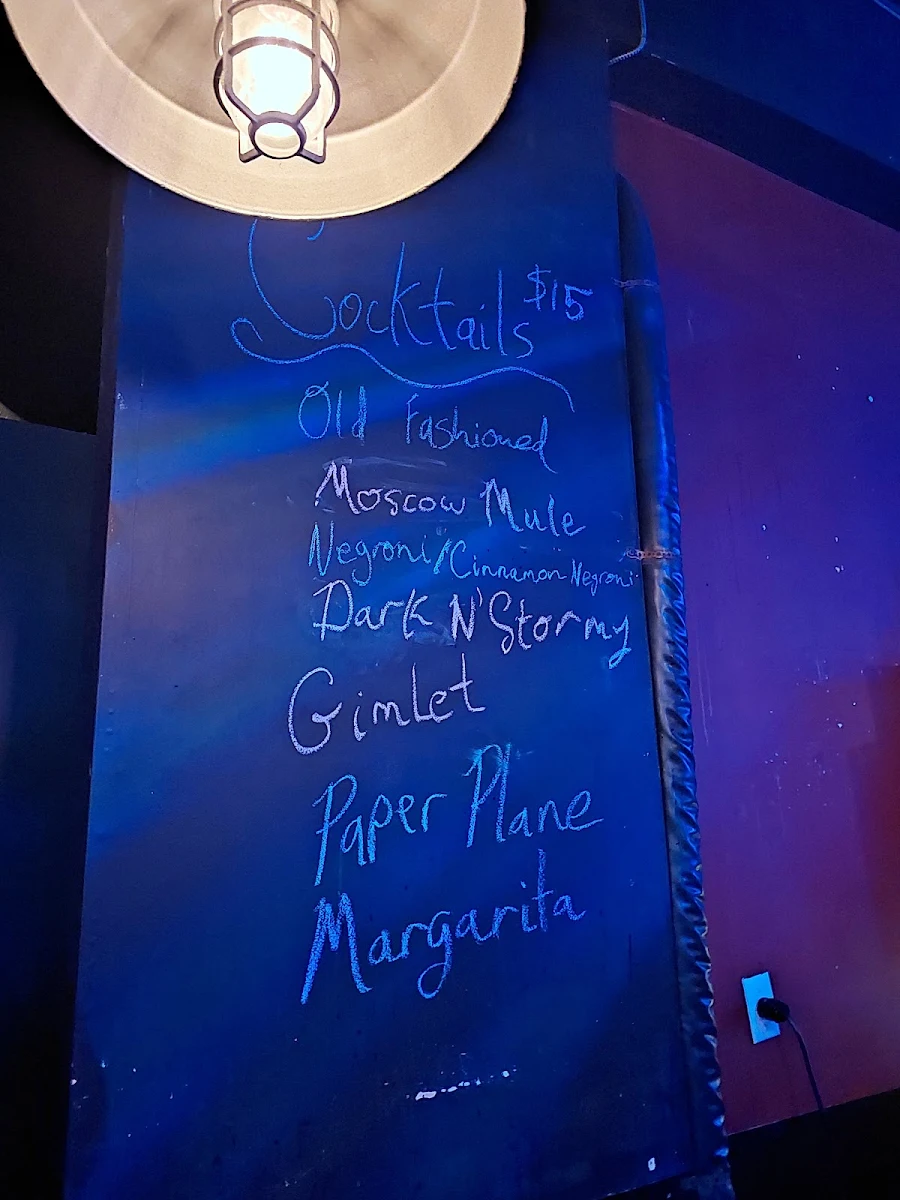 Cocktails $15
Old Fashioned
Moscow Mule
Negroni/Cinnamon Negroni
Dark N' Stormy
Gimlet
Paper Plane
Margarita